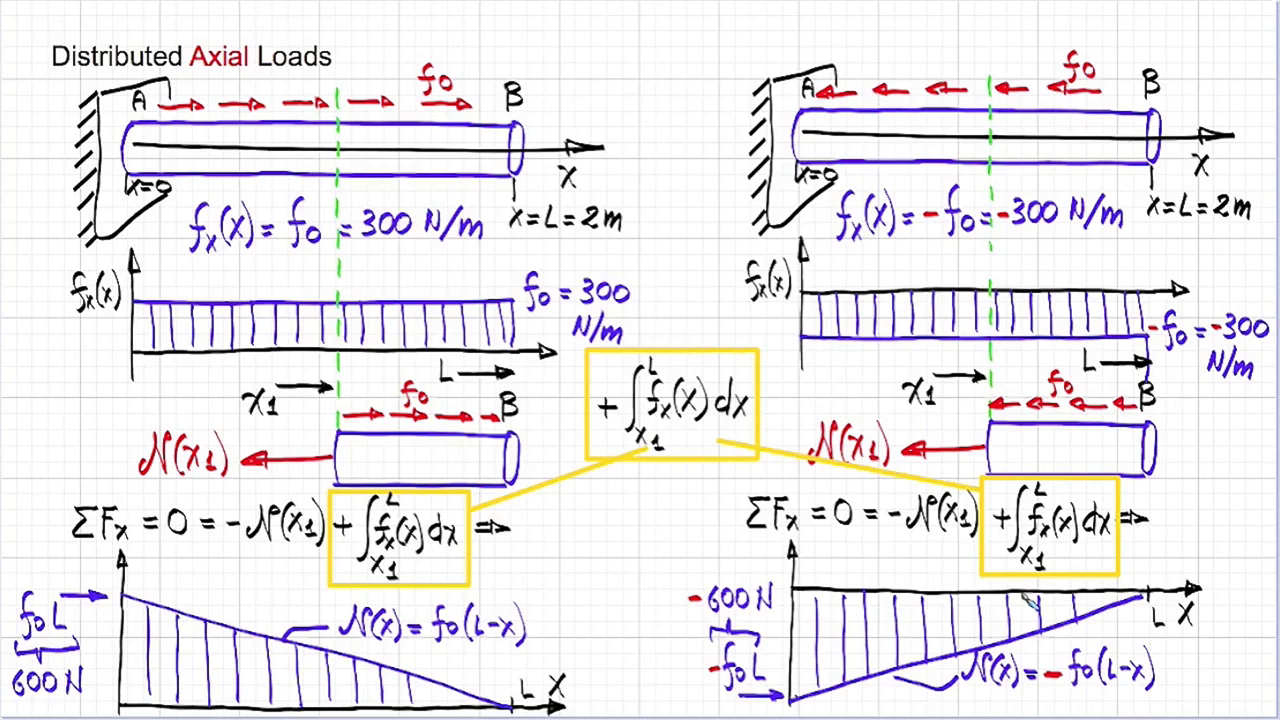 Distributed Axial Loads
A
f0
B
x=0
x
fx(x) = f0 = 300 N/m
x=L=2m
fx(x)
f0 = 300
N/m
L
x1
f0
B
N(x1)
ΣFx = 0 = -N(x1) + ∫x1^L fx(x) dx ⇒
f0L
600N
N(x) = f0(L-x)
L x
+ ∫x1^L fx(x) dx
A
f0
B
x=0
x
fx(x) = -f0 = -300 N/m
x=L=2m
fx(x)
-f0 = -300
N/m
L
x1
f0
B
N(x1)
ΣFx = 0 = -N(x1) + ∫x1^L fx(x) dx ⇒
-600N
-f0L
L x
N(x) = -f0(L-x)